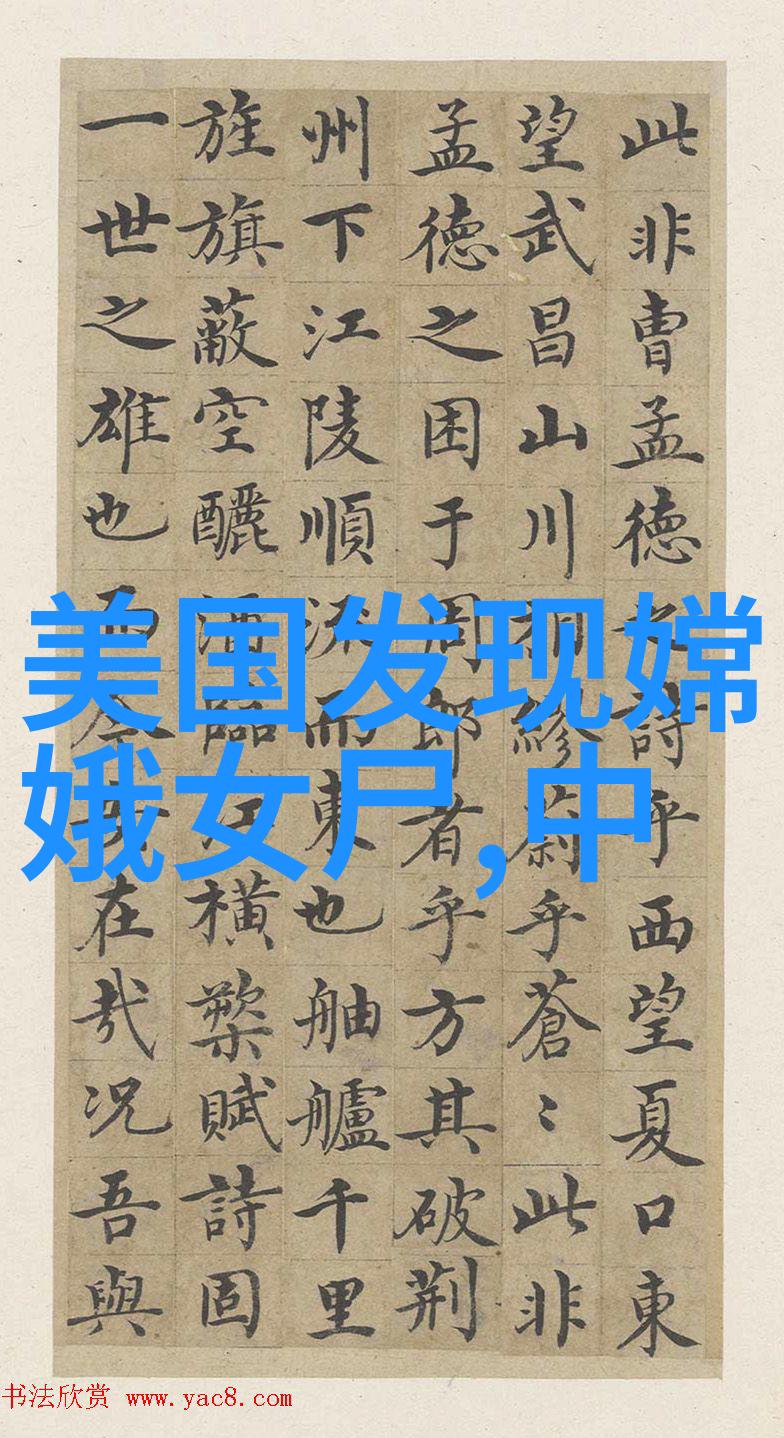 此非曹孟德之詩乎西望夏口東
望武昌山川相繆蔚乎蒼〻此非
孟德之困于周郎者乎方其破荆
州下江陵順流而東也舳艫千里
旌旗蔽空釃酒臨江橫槊賦詩固
一世之雄也而今安在哉况吾與
美国发现嫦
娥女尸,中
书法欣赏 www.yac8.com